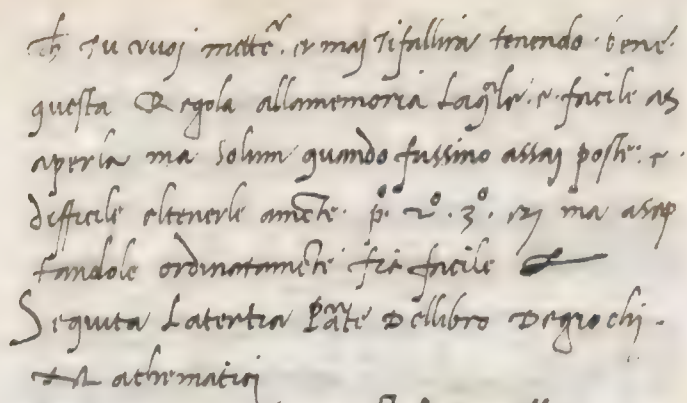 Ch tu vuoj mette. et maj ti fallira tenendo. bene.
questa Regola allamemoria laqle. e. facile as
aperla ma solum quando fussino assaj poste: e.
difficile eltenerle amete. po. 2o. 3o. ma asap
tandole ordinatamete fia facile
Seguita Latertia Pate Dellibro Degiochi.
Mathematicj